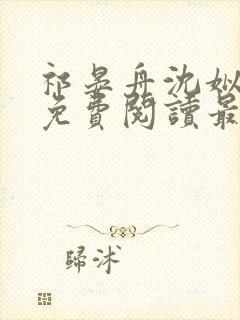 祁晏舟沈姒
免費閱讀最
歸沭